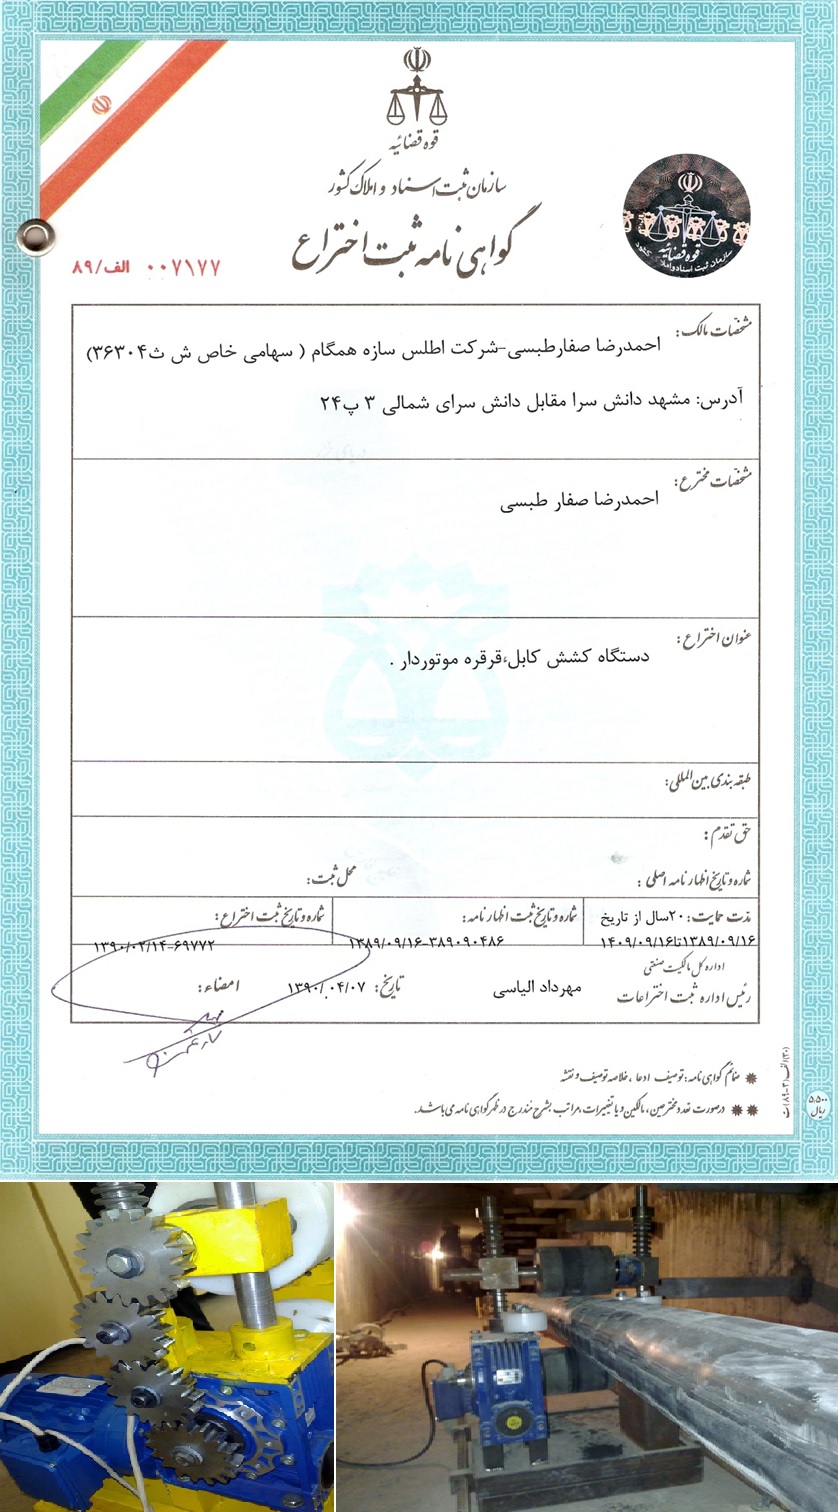 قوه قضائیه
سازمان ثبت اسناد و املاک کشور
گواهی نامه ثبت اختراع
۰۰۷۱۷۷ الف/۸۹
قوه قضائیه
سازمان ثبت اسناد و املاک کشور
مشخصات مالک:
احمدرضا صفارطبسی-شرکت اطلس سازه همگام ( سهامی خاص ش ث۳۶۳۰۴)
آدرس: مشهد دانش سرا مقابل دانش سرای شمالی ۳ پ۲۴
مشخصات مخترع:
احمدرضا صفار طبسی
عنوان اختراع:
دستگاه کشش کابل،قرقره موتوردار .
طبقه بندی بین المللی:
حق تقدم:
شماره و تاریخ اظهار نامه اصلی :
محل ثبت:
مدت حمایت: ۲۰سال از تاریخ
۱۳۸۹/۰۹/۱۶تا۱۴۰۹/۰۹/۱۶
شماره و تاریخ ثبت اظهار نامه:
۱۳۸۹/۰۹/۱۶-۳۸۹۰۹۰۴۸۶
شماره و تاریخ ثبت اختراع:
۱۳۹۰/۰۲/۱۴-۶۹۷۷۲
اداره کل مالکیت صنعتی
رئیس اداره ثبت اختراعات
مهرداد الیاسی
تاریخ: ۱۳۹۰/۰۴/۰۷
امضاء:
ضمائم گواهی نامه: توصیف ادعا ، خلاصه توصیف و نقشه
درصورت تعدد مخترعین، مالکین و یا تغییرات، مراتب بشرح مندرج در ظهر گواهی نامه می باشد.
۵,۵۰۰
ریال